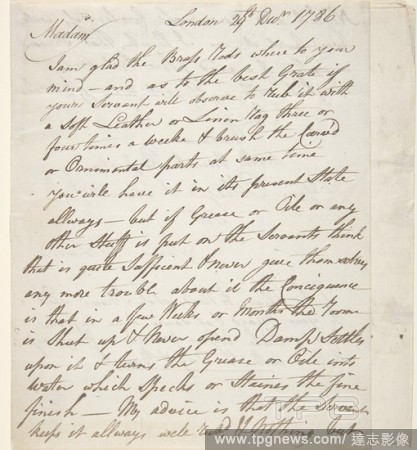 London 29th Decr 1786
Madam
I am glad the Brass Rods where to your
mind – and as to the best Grate if
your Servant will observe to rub it with
a soft Leather or Linen Rag three or
four times a weeke & brush the Carved
or Ornimental parts at same time
You will have it in its present State
allways – but if Grease or Oile or any
other Stuff is put on the Servants think
that is quite Safficent & never give themselves
any more trouble about it the Conciquence
is that in a few Weeks or Months the Roome
is Shut up & Never opend Damp Settles
upon it & turns the Grease or Oile into
water which Specks or Staines the fine
finish – My advice is that the Servant
keeps it allways well rub'd & Nothing put
TPG
www.tpgnews.com 達志影像